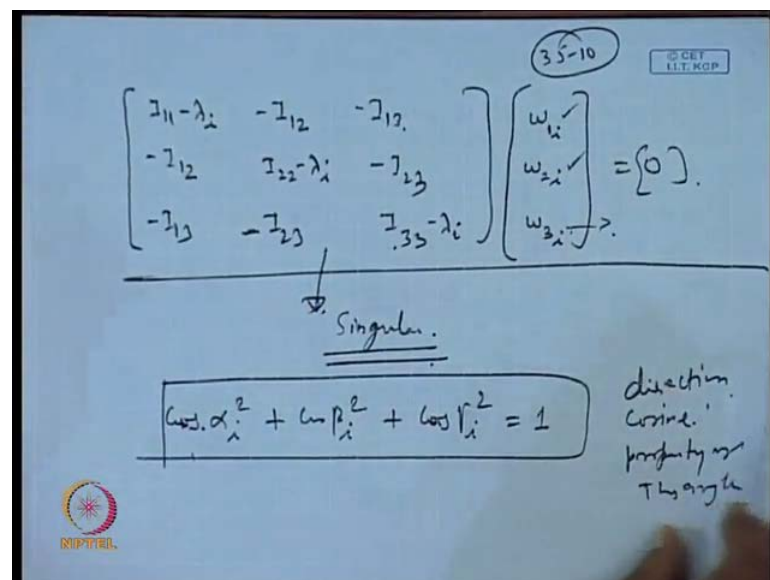 35-10
© CET
I.I.T. KGP
I₁₁-λᵢ -I₁₂ -I₁₃ ω₁ᵢ ✓
-I₁₂ I₂₂-λᵢ -I₂₃ ω₂ᵢ ✓ = {0}.
-I₁₃ -I₂₃ I₃₃-λᵢ ω₃ᵢ →
Singular.
Cos.αᵢ² + Cosβᵢ² + Cosγᵢ² = 1
direction
Cosine.
property of
NPTEL